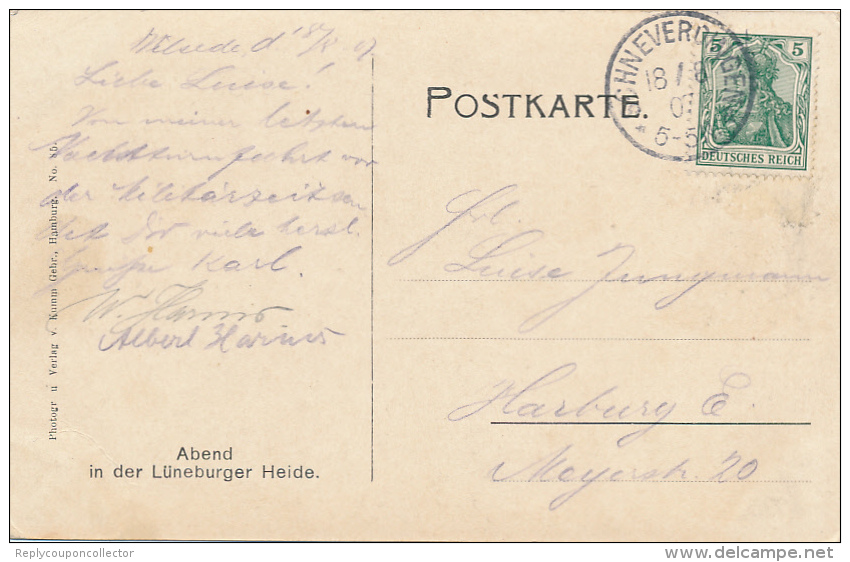 Wilsede d 18/8 07
Liebe Luise!
Von meiner letzten
Nachtturnfahrt vor
der Militärzeit sen
det Dir viele herzl.
Grüße Karl.
W. Harms
Albert Harms
Abend
in der Lüneburger Heide.
Photogr u Verlag v. Kumm Gebr., Hamburg, No.
POSTKARTE.
SCHNEVERDINGEN
18 / 8
07
* 5-5
5 5
DEUTSCHES REICH
Frl.
Luise Jungmann
Harburg E.
Meyerstr. 20
Replycouponcollector
delcampe.net